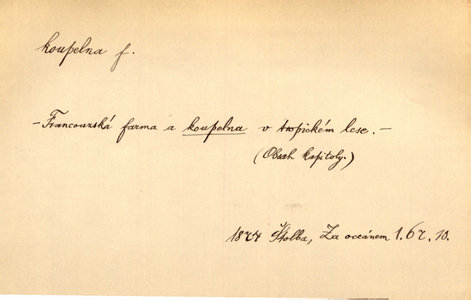 koupelna f.
- Francouzská farma a koupelna v tropickém lese. -
(Obsah kapitoly.)
1874 Štolba, Za oceánem 1.67.10.